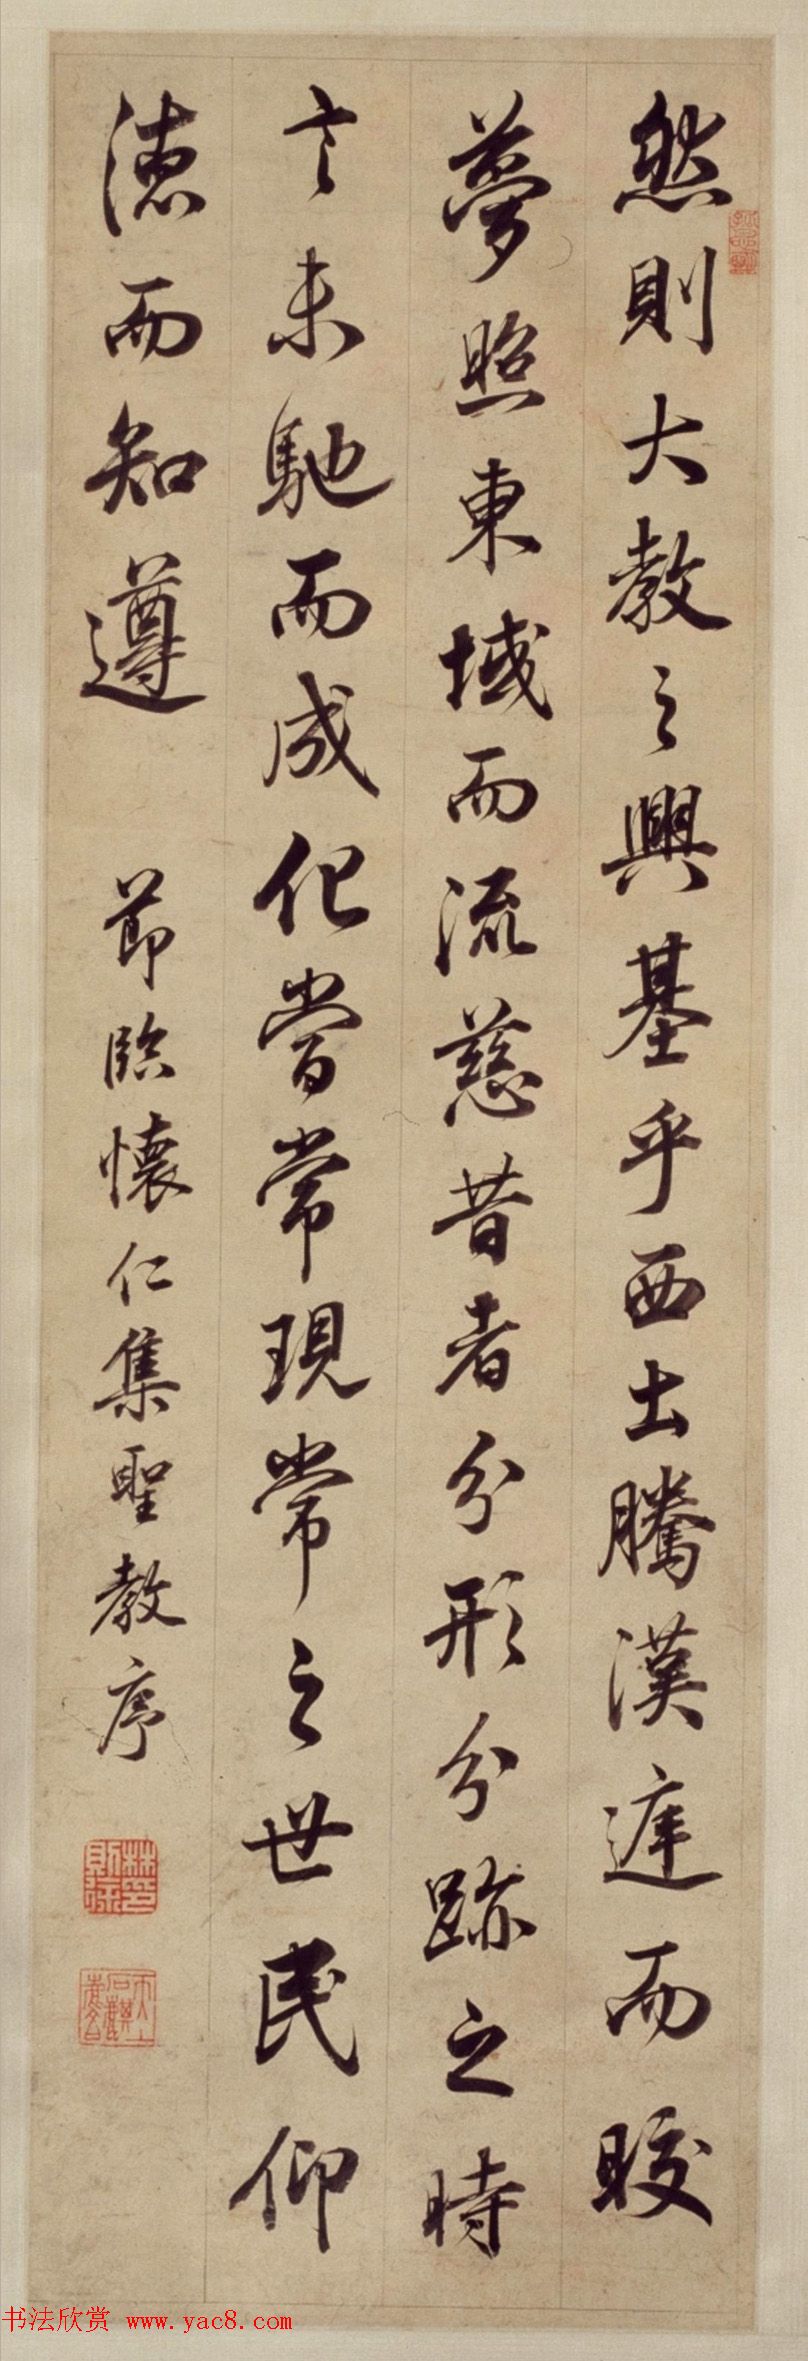 然則大教之興基乎西土騰漢庭而皎
夢照東域而流慈昔者分形分跡之時
言未馳而成化當常現常之世民仰
德而知遵
節臨懷仁集聖教序
林則徐印
书法欣赏 www.yac8.com